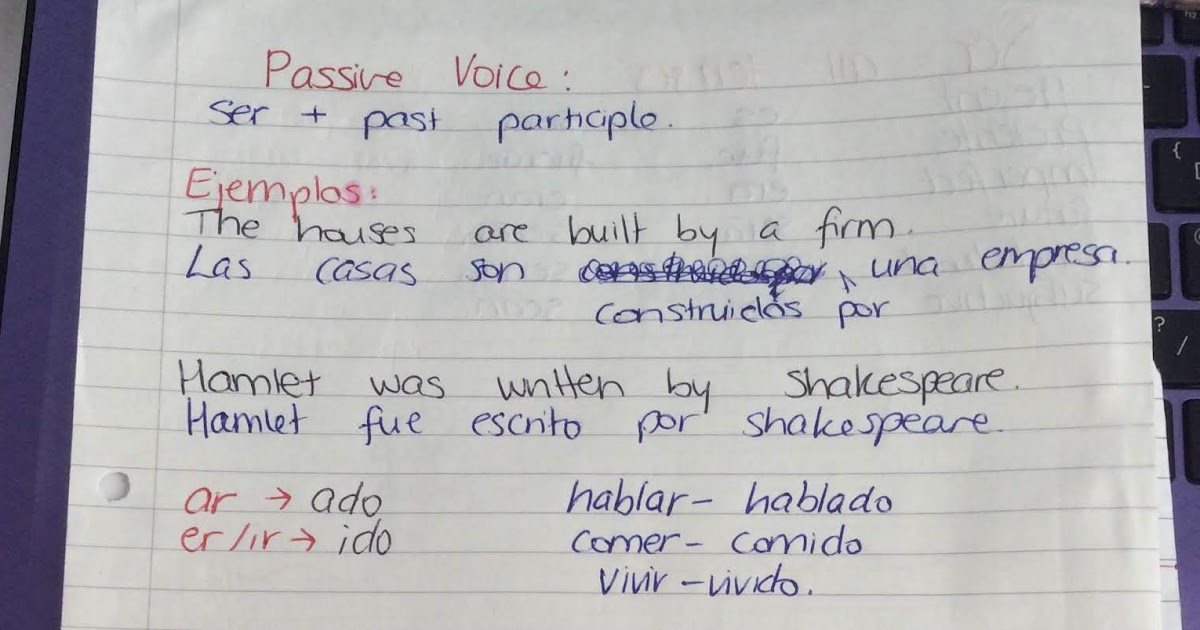 Passive Voice:
Ser + past participle.
Ejemplos:
The houses are built by a firm.
Las casas son una empresa.
construidas por
Hamlet was written by Shakespeare.
Hamlet fue escrito por Shakespeare.
ar → ado
hablar - hablado
er/ir → ido
comer - comido
vivir - vivido.